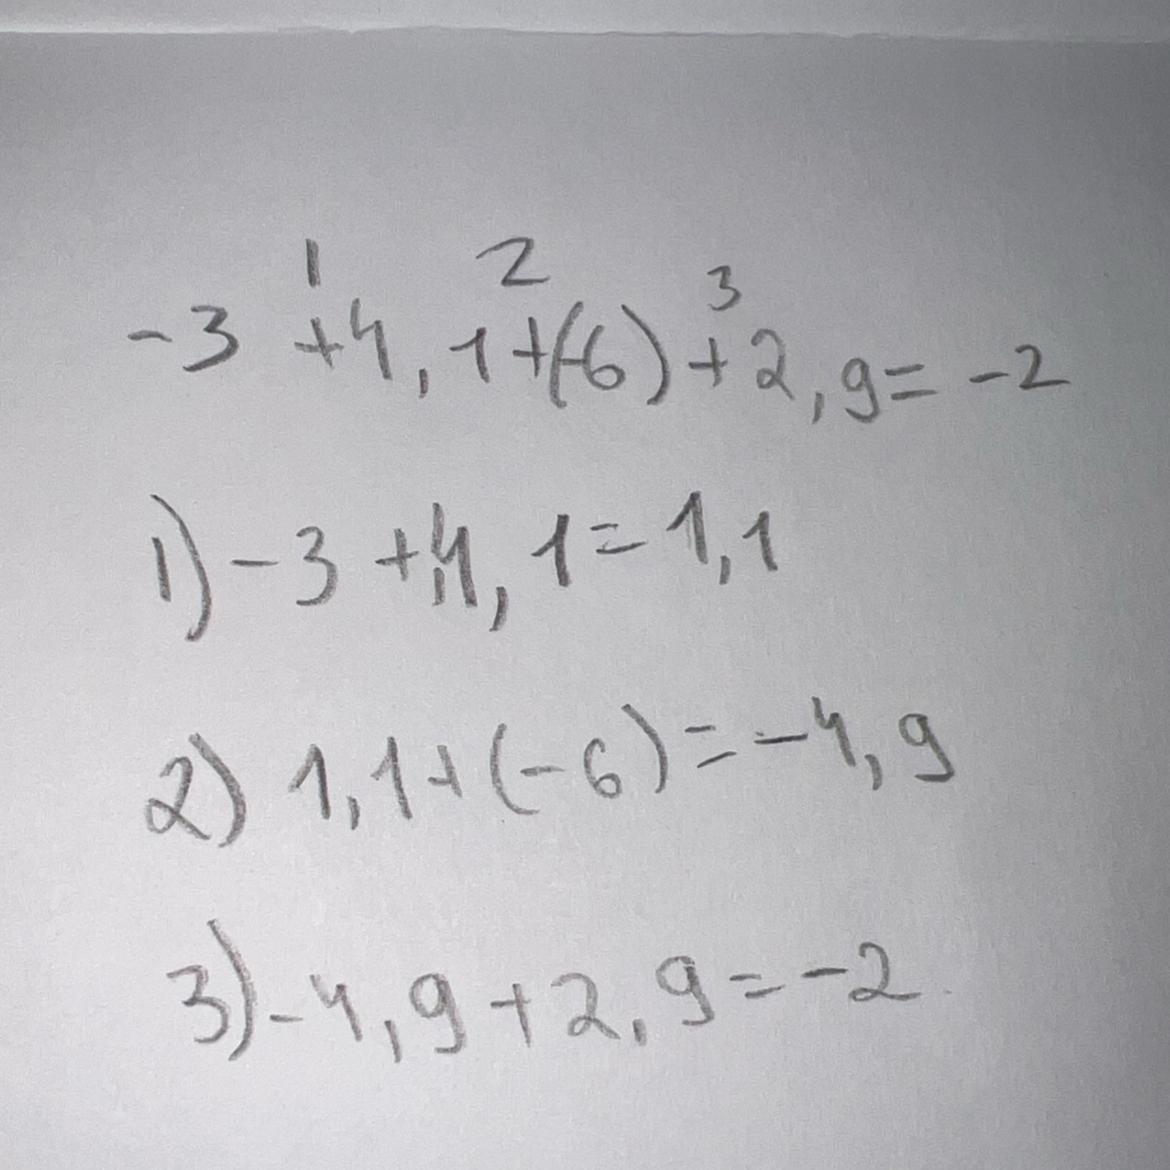 1 2 3
-3 +4,1+(-6)+2,9=-2
1) -3+4,1=1,1
2) 1,1+(-6)=-4,9
3) -4,9+2,9=-2